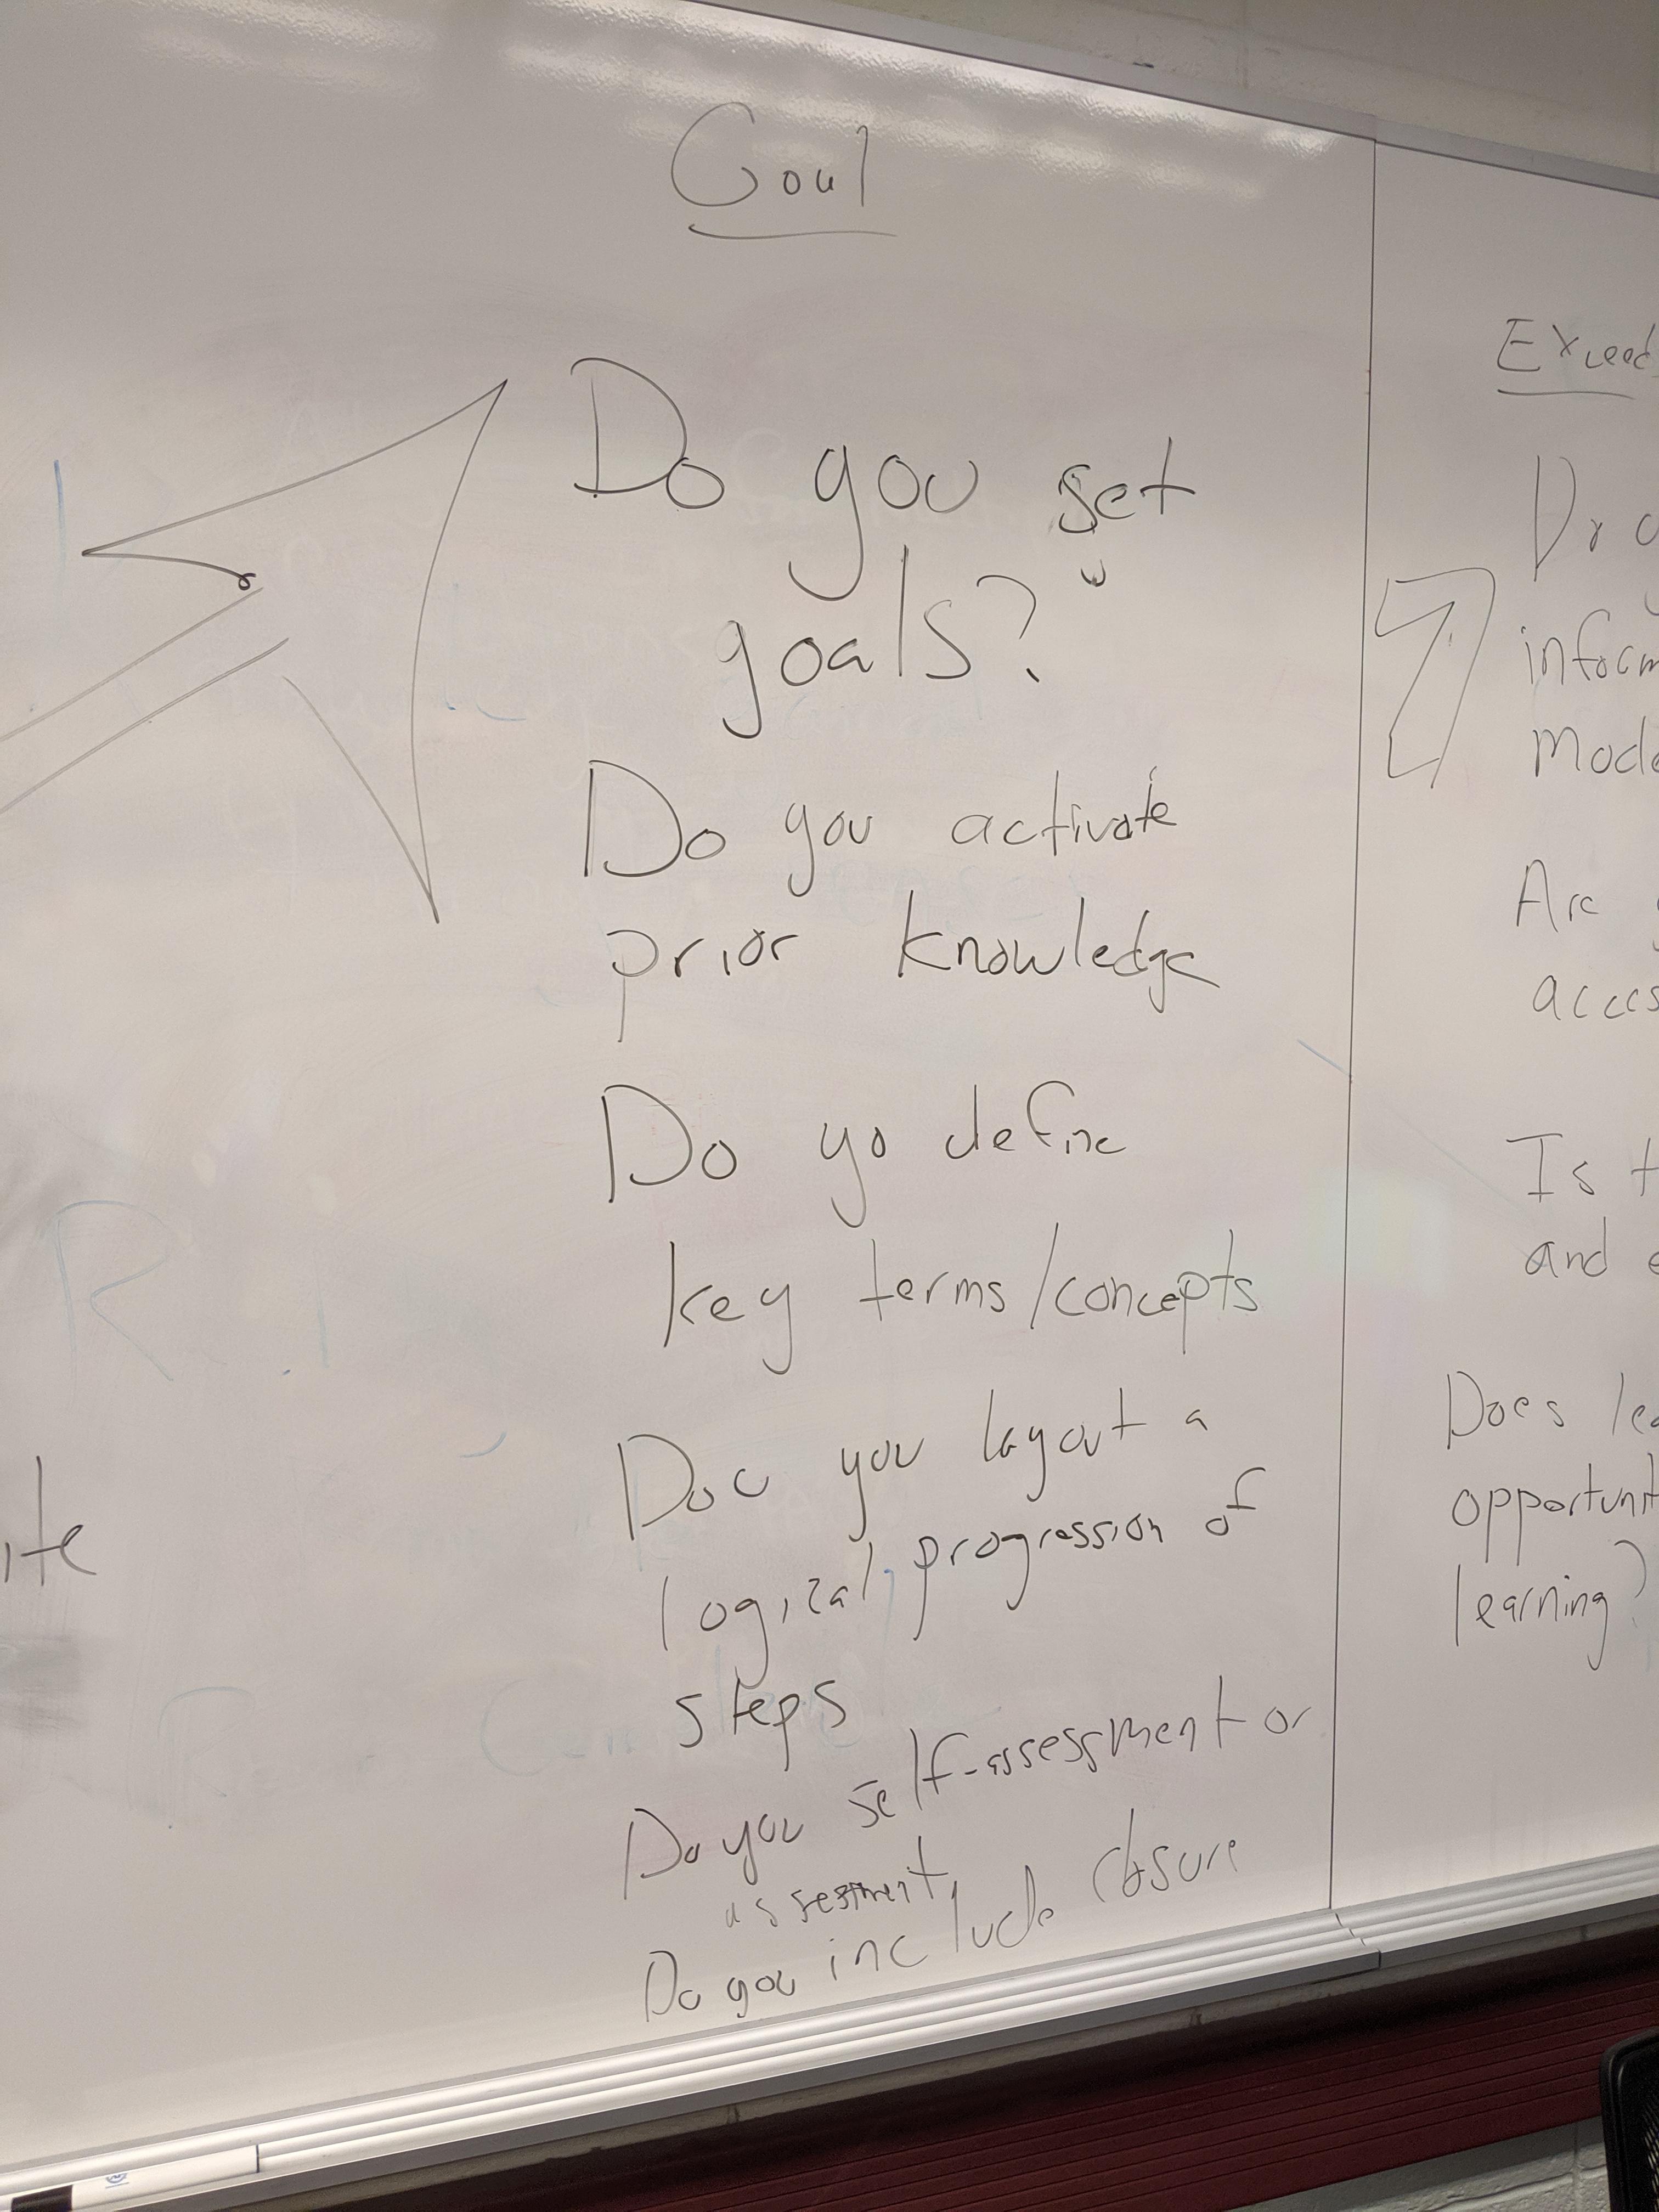 Goal
Do you set
goals?
Do you activate
prior knowledge
Do yo define
key terms/concepts
Do you layout a
logical progression of
steps
Do you self-assessment or
assessment
Do you include closure
ite
Exceeds
inform
Mode
Are
acces
Is t
and e
Does lea
opportunit
learning?